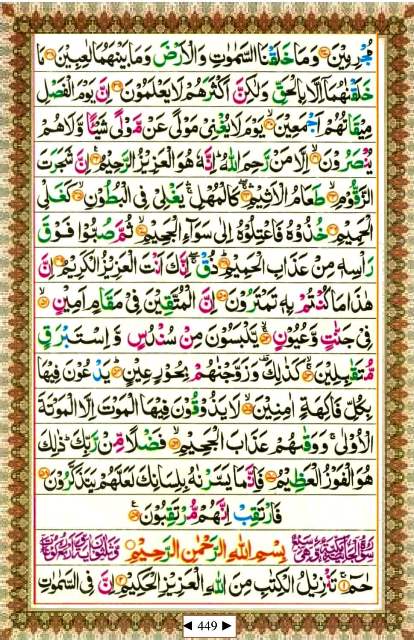 مُجْرِمِيْنَ ۝ وَمَا خَلَقْنَا السَّمٰوٰتِ وَالْاَرْضَ وَمَا بَيْنَهُمَا لٰعِبِيْنَ ۝ مَا
خَلَقْنٰهُمَاۤ اِلَّا بِالْحَقِّ وَلٰكِنَّ اَكْثَرَهُمْ لَا يَعْلَمُوْنَ ۝ اِنَّ يَوْمَ الْفَصْلِ
مِيْقَاتُهُمْ اَجْمَعِيْنَ ۝ يَوْمَ لَا يُغْنِيْ مَوْلًى عَنْ مَّوْلًى شَيْـًٔا وَّلَا هُمْ
يُنْصَرُوْنَ ۝ اِلَّا مَنْ رَّحِمَ اللّٰهُ ؕ اِنَّهٗ هُوَ الْعَزِيْزُ الرَّحِيْمُ ۝ اِنَّ شَجَرَتَ
الزَّقُّوْمِ ۝ طَعَامُ الْاَثِيْمِ ۝ كَالْمُهْلِ ۚ يَغْلِيْ فِي الْبُطُوْنِ ۝ كَغَلْيِ
الْحَمِيْمِ ۝ خُذُوْهُ فَاعْتِلُوْهُ اِلٰى سَوَآءِ الْجَحِيْمِ ۝ ثُمَّ صُبُّوْا فَوْقَ
رَاْسِهٖ مِنْ عَذَابِ الْحَمِيْمِ ۝ ذُقْ ۙ اِنَّكَ اَنْتَ الْعَزِيْزُ الْكَرِيْمُ ۝ اِنَّ
هٰذَا مَا كُنْتُمْ بِهٖ تَمْتَرُوْنَ ۝ اِنَّ الْمُتَّقِيْنَ فِيْ مَقَامٍ اَمِيْنٍ ۝
فِيْ جَنّٰتٍ وَّعُيُوْنٍ ۝ يَّلْبَسُوْنَ مِنْ سُنْدُسٍ وَّاِسْتَبْرَقٍ
مُّتَقٰبِلِيْنَ ۝ كَذٰلِكَ ۫ وَزَوَّجْنٰهُمْ بِحُوْرٍ عِيْنٍ ۝ يَدْعُوْنَ فِيْهَا
بِكُلِّ فَاكِهَةٍ اٰمِنِيْنَ ۝ لَا يَذُوْقُوْنَ فِيْهَا الْمَوْتَ اِلَّا الْمَوْتَةَ
الْاُوْلٰى ۚ وَوَقٰىهُمْ عَذَابَ الْجَحِيْمِ ۝ فَضْلًا مِّنْ رَّبِّكَ ؕ ذٰلِكَ
هُوَ الْفَوْزُ الْعَظِيْمُ ۝ فَاِنَّمَا يَسَّرْنٰهُ بِلِسَانِكَ لَعَلَّهُمْ يَتَذَكَّرُوْنَ ۝
فَارْتَقِبْ اِنَّهُمْ مُّرْتَقِبُوْنَ ۝
بِسْمِ اللّٰهِ الرَّحْمٰنِ الرَّحِيْمِ
حٰمٓ ۝ تَنْزِيْلُ الْكِتٰبِ مِنَ اللّٰهِ الْعَزِيْزِ الْحَكِيْمِ ۝ اِنَّ فِي السَّمٰوٰتِ
◄ 449 ►